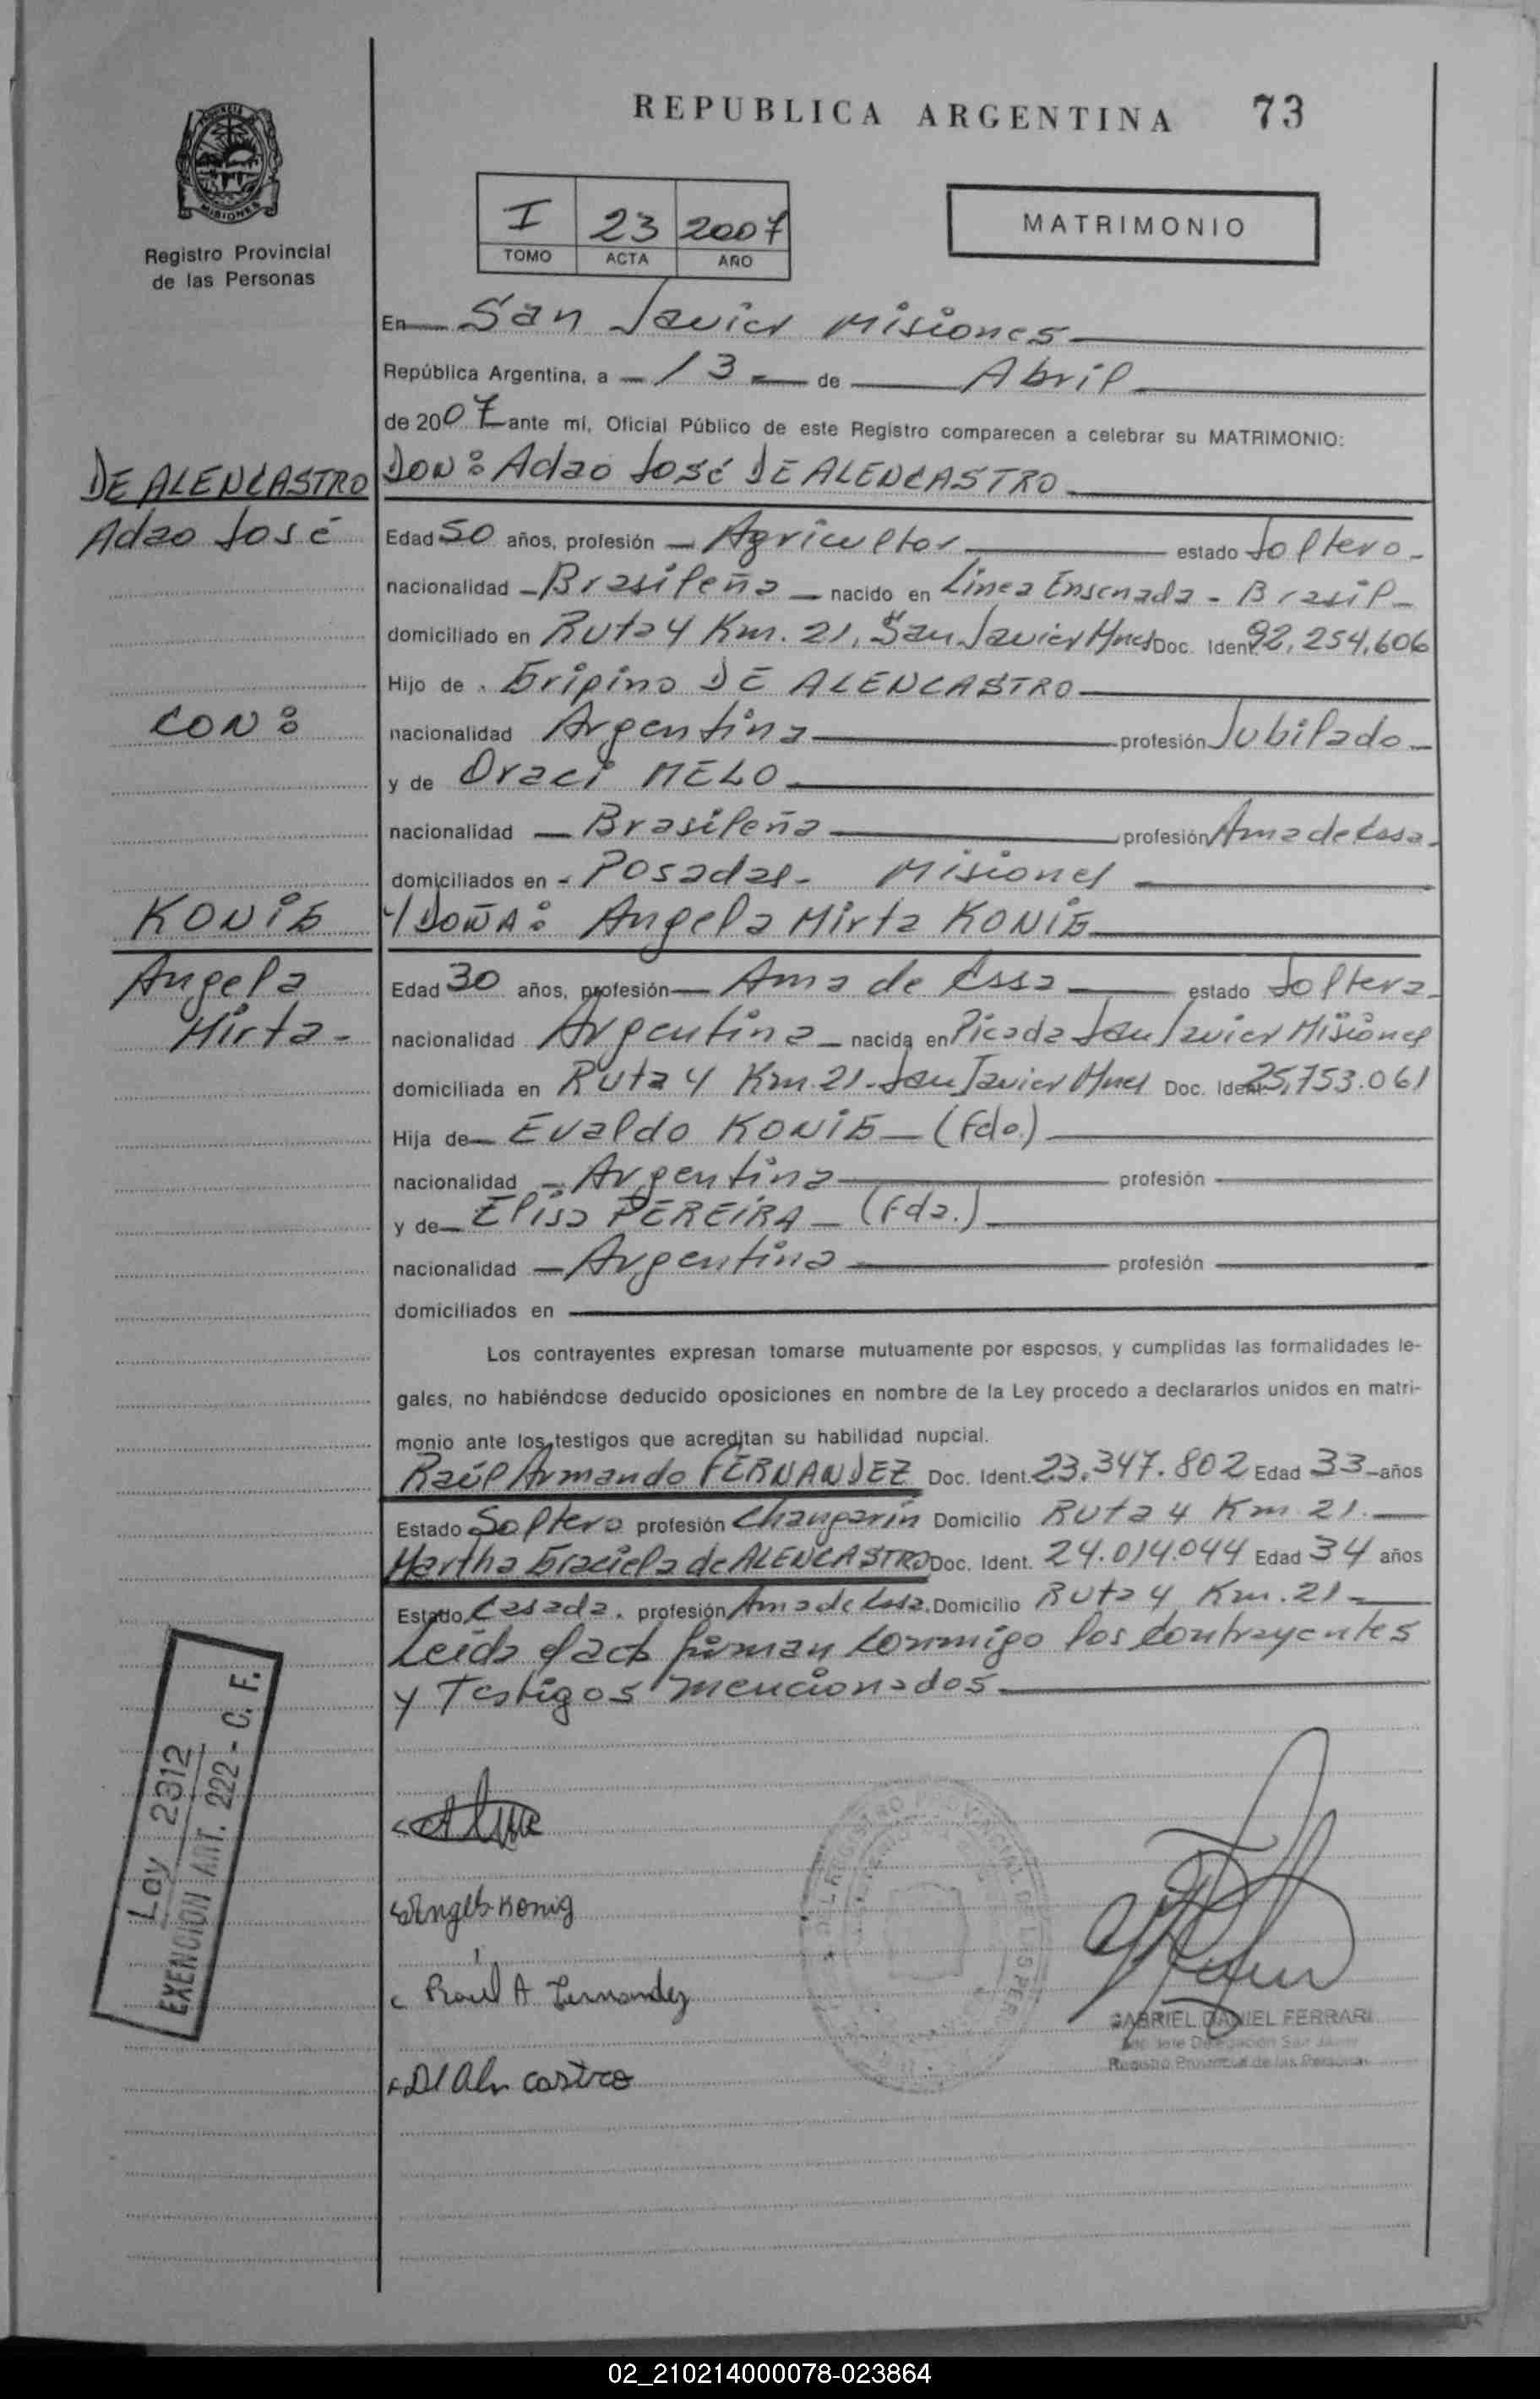 REPUBLICA ARGENTINA 73
MISIONES
Registro Provincial
de las Personas
I 23 2007
TOMO ACTA AÑO
MATRIMONIO
En San Javier Misiones
República Argentina, a 13 de Abril
de 2007 ante mí, Oficial Público de este Registro comparecen a celebrar su MATRIMONIO:
DE ALENCASTRO
Adao José
CON:
KONIG
Angela
Mirta
DON: Adao José DE ALENCASTRO
Edad 50 años, profesión Agricultor estado Soltero
nacionalidad Brasileña nacido en Linea Ensenada - Brasil
domiciliado en Ruta 4 Km. 21, San Javier Mnes Doc. Ident. 92.254.606
Hijo de Gripino DE ALENCASTRO
nacionalidad Argentina profesión Jubilado
y de Oraci MELO
nacionalidad Brasileña profesión Ama de Casa.
domiciliados en Posadas - Misiones
Y DOÑA: Angela Mirta KONIG
Edad 30 años, profesión Ama de Casa estado Soltera
nacionalidad Argentina nacida en Picada San Javier Misiones
domiciliada en Ruta 4 Km. 21 - San Javier Mnes Doc. Ident. 25.753.061
Hija de Evaldo KONIG (Fdo.)
nacionalidad Argentina profesión
y de Elisa PEREIRA (Fda.)
nacionalidad Argentina profesión
domiciliados en
Los contrayentes expresan tomarse mutuamente por esposos, y cumplidas las formalidades le-
gales, no habiéndose deducido oposiciones en nombre de la Ley procedo a declararlos unidos en matri-
monio ante los testigos que acreditan su habilidad nupcial.
Raúl Armando FERNANDEZ Doc. Ident. 23.347.802 Edad 33 años
Estado Soltero profesión Changarín Domicilio Ruta 4 Km 21.
Martha Graciela de ALENCASTRO Doc. Ident. 24.014.044 Edad 34 años
Estado Casada. profesión Ama de Casa. Domicilio Ruta 4 Km. 21
Leida el acta firman conmigo los contrayentes
y Testigos mencionados
Ley 2312
EXENCION ART. 222 - C. F.
Angela Konig
Raúl A Fernandez
GABRIEL DANIEL FERRARI
Registro Provincial de las Personas
02_210214000078-023864